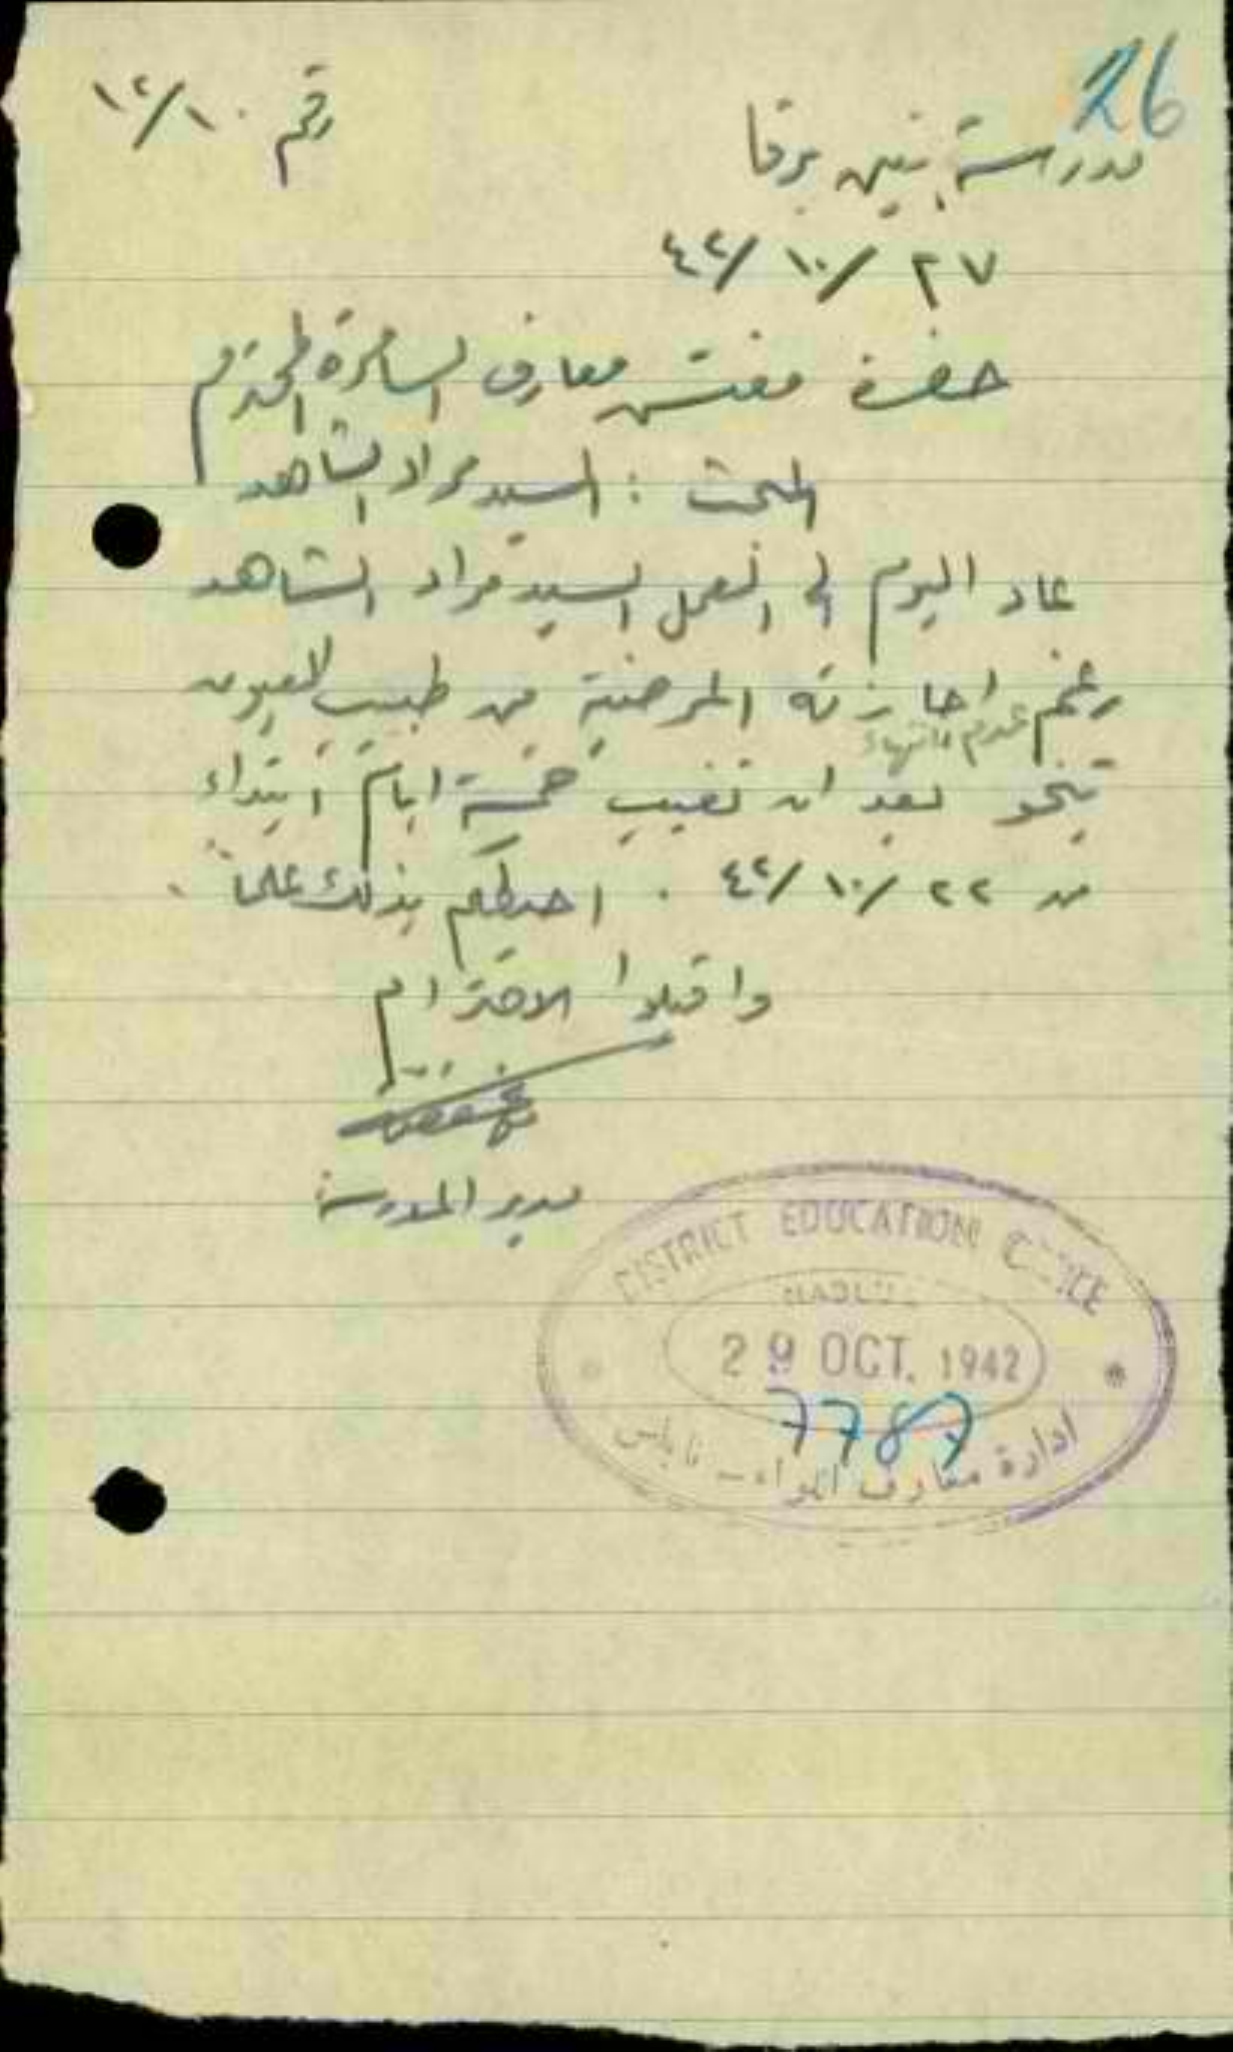 26
مدرسة بنين برقا
رقم ١٢/١٠
٢٧ / ١٠ / ٤٢
حضرة مفتش معارف السامرة المحترم
المبحث : السيد مراد الشاهد
عاد اليوم الى العمل السيد مراد الشاهد
رغم عدم انتهاء اجازته المرضية من طبيب العيون
بعد ان تغيب خمسة ايام ابتداء
من ٢٢ / ١٠ / ٤٢ . احيطكم بذلك علماً .
واقبلوا الاحترام
مدير المدرسة
DISTRICT EDUCATION OFFICE
NABLUS
29 OCT. 1942
7787
ادارة معارف اللواء - نابلس